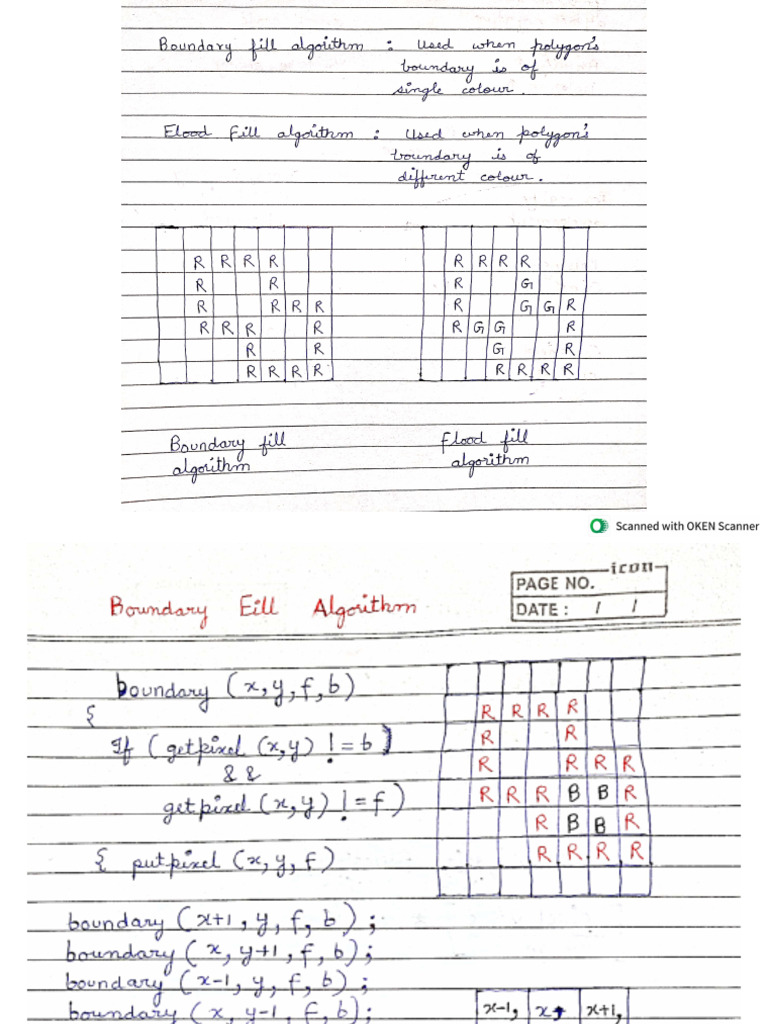 Boundary fill algorithm : Used when polygon's
boundary is of
single colour.
Flood Fill algorithm : Used when polygon's
boundary is of
different colour.
R R R R
R R
R R R R
R R R R
R R
R R R R
R R R R
R G
R G G R
R G G R
G R
R R R R
Boundary fill
algorithm
Flood fill
algorithm
Scanned with OKEN Scanner
icon
PAGE NO.
DATE : / /
Boundary Fill Algorithm
boundary (x,y,f,b)
{
If (getpixel (x,y) != b)
&&
getpixel (x,y) != f)
{ putpixel (x,y,f)
R R R R
R R
R R R R
R R R B B R
R B B R
R R R R
boundary (x+1, y, f, b);
boundary (x, y+1, f, b);
boundary (x-1, y, f, b);
boundary (x, y-1, f, b);
x-1, x, x+1,